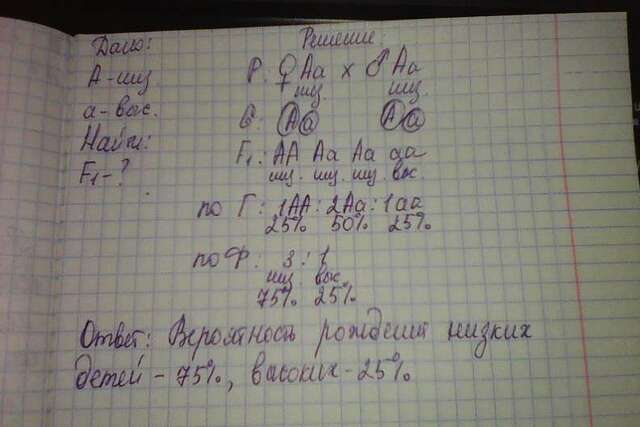 Дано: Решение:
А-низ Р: ♀ Аа х ♂ Аа
низ. низ.
а-выс. G: А а А а
Найти: F1: АА Аа Аа аа
F1-? низ. низ. низ. выс.
по Г: 1АА : 2Аа : 1аа
25% 50% 25%
по Ф: 3 : 1
низ выс
75% 25%
Ответ: Вероятность рождения низких
детей - 75%, высоких - 25%